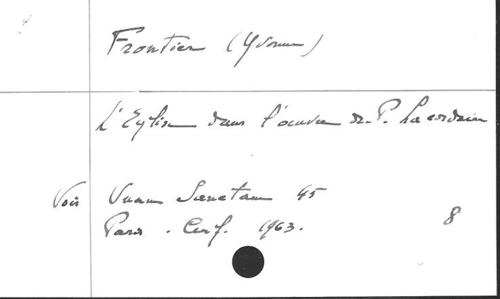 Frontier (Yvonne)
L'Eglise dans l'oeuvre du P. Lacordaire
Voir Unam Sanctam 45
Paris. Cerf. 1963. 8